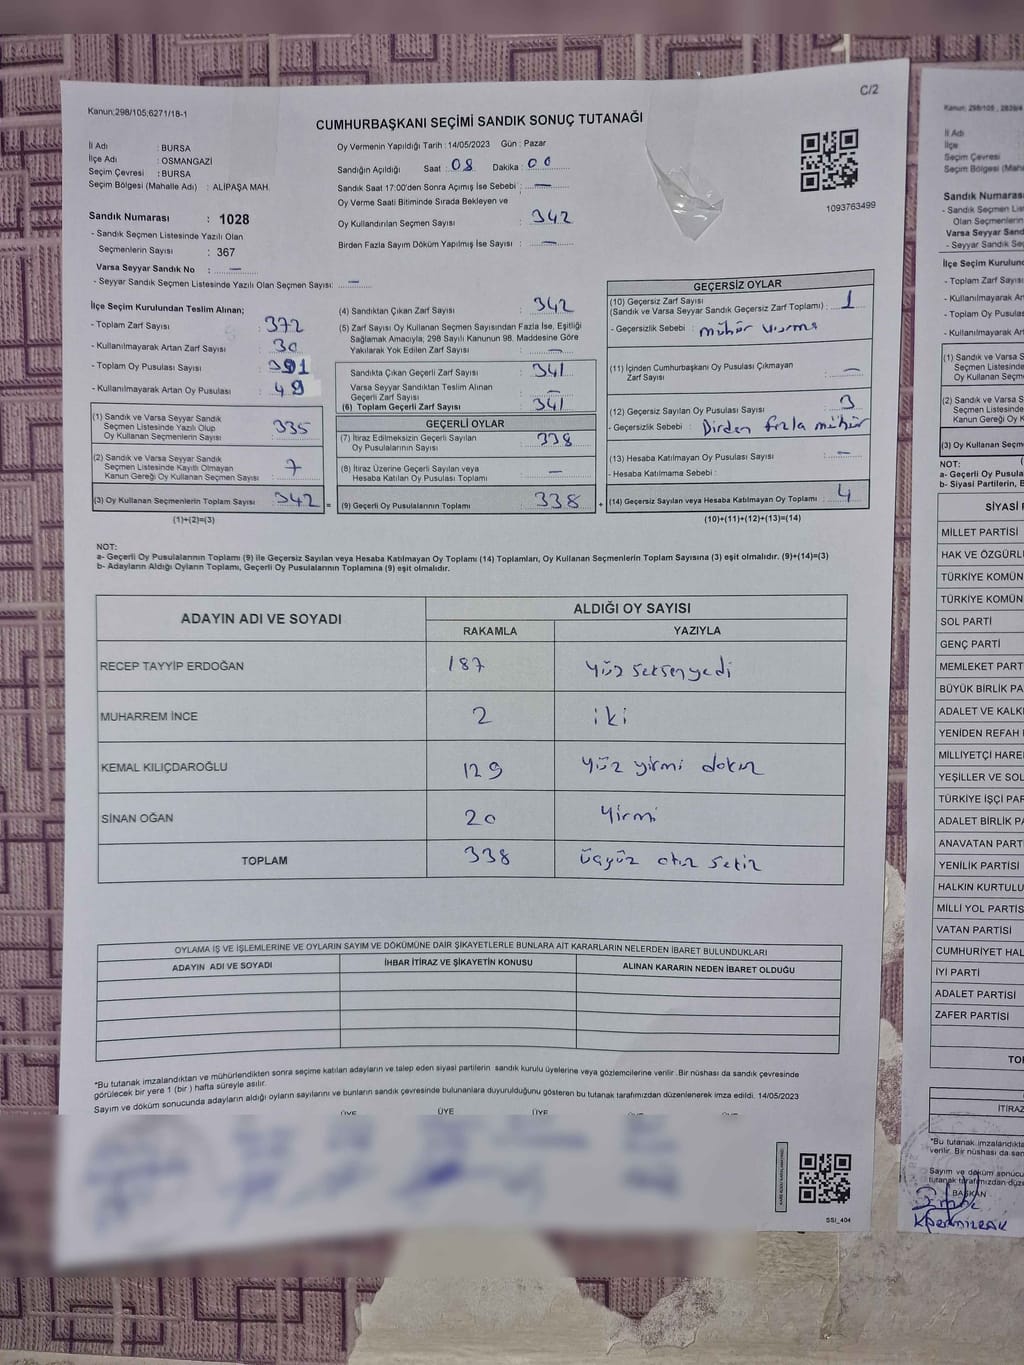 C/2
Kanun:298/105;6271/18-1
CUMHURBAŞKANI SEÇİMİ SANDIK SONUÇ TUTANAĞI
İl Adı : BURSA
İlçe Adı : OSMANGAZİ
Seçim Çevresi : BURSA
Seçim Bölgesi (Mahalle Adı) : ALİPAŞA MAH.
Oy Vermenin Yapıldığı Tarih : 14/05/2023 Gün : Pazar
Sandığın Açıldığı Saat : 08 Dakika : 00
Sandık Saat 17:00'den Sonra Açımış İse Sebebi : —
Oy Verme Saati Bitiminde Sırada Bekleyen ve
Oy Kullandırılan Seçmen Sayısı : 342
Birden Fazla Sayım Döküm Yapılmış İse Sayısı : —
1093763499
Sandık Numarası : 1028
- Sandık Seçmen Listesinde Yazılı Olan
Seçmenlerin Sayısı : 367
Varsa Seyyar Sandık No : —
- Seyyar Sandık Seçmen Listesinde Yazılı Olan Seçmen Sayısı: —
İlçe Seçim Kurulundan Teslim Alınan;
- Toplam Zarf Sayısı : 372
- Kullanılmayarak Artan Zarf Sayısı : 30
- Toplam Oy Pusulası Sayısı : 391
- Kullanılmayarak Artan Oy Pusulası : 49
(1) Sandık ve Varsa Seyyar Sandık
Seçmen Listesinde Yazılı Olup
Oy Kullanan Seçmenlerin Sayısı : 335
(2) Sandık ve Varsa Seyyar Sandık
Seçmen Listesinde Kayıtlı Olmayan
Kanun Gereği Oy Kullanan Seçmen Sayısı : 7
(3) Oy Kullanan Seçmenlerin Toplam Sayısı : 342 =
(1)+(2)=(3)
(4) Sandıktan Çıkan Zarf Sayısı : 342
(5) Zarf Sayısı Oy Kullanan Seçmen Sayısından Fazla İse, Eşitliği
Sağlamak Amacıyla; 298 Sayılı Kanunun 98. Maddesine Göre
Yakılarak Yok Edilen Zarf Sayısı : —
Sandıkta Çıkan Geçerli Zarf Sayısı : 341
Varsa Seyyar Sandıktan Teslim Alınan
Geçerli Zarf Sayısı : —
(6) Toplam Geçerli Zarf Sayısı : 341
GEÇERLİ OYLAR
(7) İtiraz Edilmeksizin Geçerli Sayılan
Oy Pusulalarının Sayısı : 338
(8) İtiraz Üzerine Geçerli Sayılan veya
Hesaba Katılan Oy Pusulası Toplamı : —
(9) Geçerli Oy Pusulalarının Toplamı : 338 +
GEÇERSİZ OYLAR
(10) Geçersiz Zarf Sayısı
(Sandık ve Varsa Seyyar Sandık Geçersiz Zarf Toplamı) : 1
- Geçersizlik Sebebi : mühür vurma
(11) İçinden Cumhurbaşkanı Oy Pusulası Çıkmayan
Zarf Sayısı : —
(12) Geçersiz Sayılan Oy Pusulası Sayısı : 3
- Geçersizlik Sebebi : Birden fazla mühür
(13) Hesaba Katılmayan Oy Pusulası Sayısı : —
- Hesaba Katılmama Sebebi :
(14) Geçersiz Sayılan veya Hesaba Katılmayan Oy Toplamı : 4
(10)+(11)+(12)+(13)=(14)
NOT:
a- Geçerli Oy Pusulalarının Toplamı (9) ile Geçersiz Sayılan veya Hesaba Katılmayan Oy Toplamı (14) Toplamları, Oy Kullanan Seçmenlerin Toplam Sayısına (3) eşit olmalıdır. (9)+(14)=(3)
b- Adayların Aldığı Oyların Toplamı, Geçerli Oy Pusulalarının Toplamına (9) eşit olmalıdır.
ADAYIN ADI VE SOYADI ALDIĞI OY SAYISI
RAKAMLA YAZIYLA
RECEP TAYYİP ERDOĞAN 187 yüz seksen yedi
MUHARREM İNCE 2 iki
KEMAL KILIÇDAROĞLU 129 yüz yirmi dokuz
SİNAN OĞAN 20 yirmi
TOPLAM 338 üçyüz otuz sekiz
OYLAMA İŞ VE İŞLEMLERİNE VE OYLARIN SAYIM VE DÖKÜMÜNE DAİR ŞİKAYETLERLE BUNLARA AİT KARARLARIN NELERDEN İBARET BULUNDUKLARI
ADAYIN ADI VE SOYADI İHBAR İTİRAZ VE ŞİKAYETİN KONUSU ALINAN KARARIN NEDEN İBARET OLDUĞU
*Bu tutanak imzalandıktan ve mühürlendikten sonra seçime katılan adayların ve talep eden siyasi partilerin sandık kurulu üyelerine veya gözlemcilerine verilir .Bir nüshası da sandık çevresinde
görülecek bir yere 1 (bir ) hafta süreyle asılır.
Sayım ve döküm sonucunda adayların aldığı oyların sayılarını ve bunların sandık çevresinde bulunanlara duyurulduğunu gösteren bu tutanak tarafımızdan düzenlenerek imza edildi. 14/05/2023
ÜYE ÜYE ÜYE
SSI_404
İl Adı
İlçe
Seçim Çevresi
Sandık Numarası
- Sandık Seçmen
Olan Seçmenlerin
Varsa Seyyar Sand
- Seyyar Sandık Se
İlçe Seçim Kurulund
- Toplam Zarf Sayısı
- Kullanılmayarak Artan
- Toplam Oy Pusulas
- Kullanılmayarak Art
(1) Sandık ve Varsa S
Seçmen Listesinde
Oy Kullanan Seçme
(2) Sandık ve Varsa S
Seçmen Listesinde
Kanun Gereği Oy K
(3) Oy Kullanan Seçm
NOT:
a- Geçerli Oy Pusula
b- Siyasi Partilerin,
SİYASİ
MİLLET PARTİSİ
HAK VE ÖZGÜRL
TÜRKİYE KOMÜN
TÜRKİYE KOMÜN
SOL PARTİ
GENÇ PARTİ
MEMLEKET PART
BÜYÜK BİRLİK PA
ADALET VE KALK
YENİDEN REFAH
MİLLİYETÇİ HARE
YEŞİLLER VE SOL
TÜRKİYE İŞÇİ PAR
ADALET BİRLİK PA
ANAVATAN PARTİ
YENİLİK PARTİSİ
HALKIN KURTULU
MİLLİ YOL PARTİS
VATAN PARTİSİ
CUMHURİYET HAL
İYİ PARTİ
ADALET PARTİSİ
ZAFER PARTİSİ
TO
İTİRAZ
*Bu tutanak imzalandıkta
verilir. Bir nüshası da san
Sayım ve döküm sonucu
tutanak tarafımızdan düze
BAŞKAN